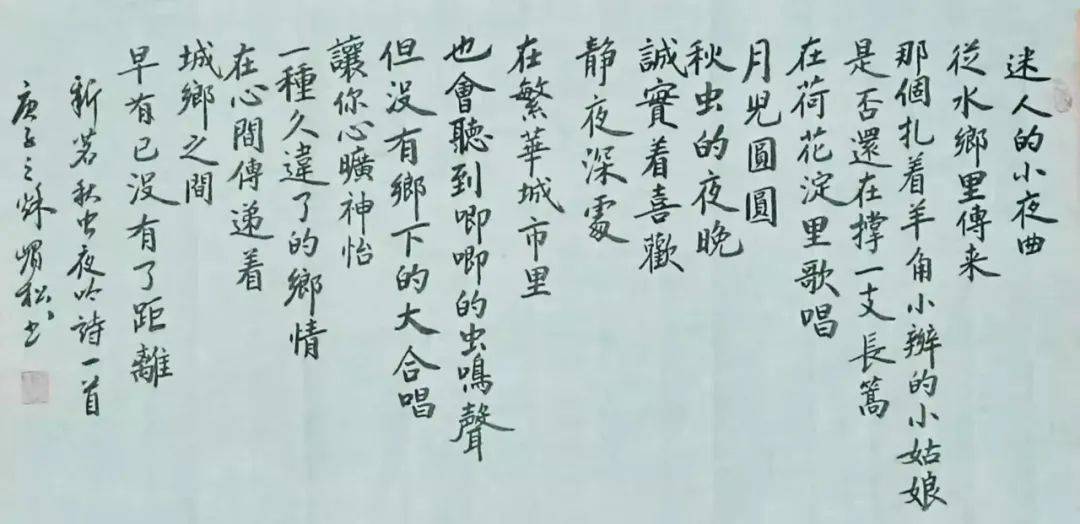 迷人的小夜曲
從水鄉里傳来
那個扎着羊角小辮的小姑娘
是否還在撑一支長篙
在荷花淀里歌唱
月兒圓圓
秋虫的夜晚
誠實着喜歡
静夜深處
在繁華城市里
也會聽到唧唧的虫鳴聲
但没有鄉下的大合唱
讓你心曠神怡
一種久違了的鄉情
在心間傳递着
城鄉之間
早有已没有了距離
新茗秋虫夜吟詩一首
庚子之秌媚松书